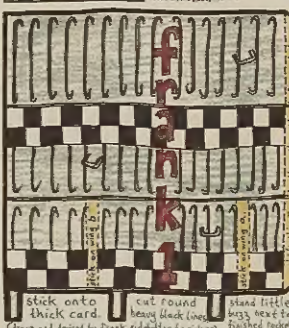 frank 1
stick on wing b.
stick on wing a.
stick onto
thick card.
cut round
heavy black lines
stand little
buzz next to
finished rocket